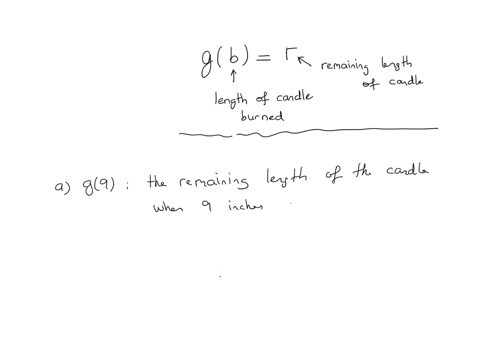 g(b) = r
remaining length
of candle
length of candle
burned
a) g(9) : the remaining length of the candle
when 9 inches